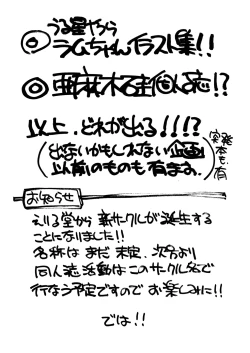 うる星やつら
◎ ラムちゃんイラスト集!!
◎ 亜麻木硅個人誌!?
以上、どれが出る!!!?
(出ないかもしれない企画
以前のものも有ます。)
実発本も有
お知らせ
えりる堂から新サークルが誕生する
ことになりました!!
名称はまだ未定、次回より
同人誌活動はこのサークル名で
行なう予定ですのでお楽しみに!!
では!!